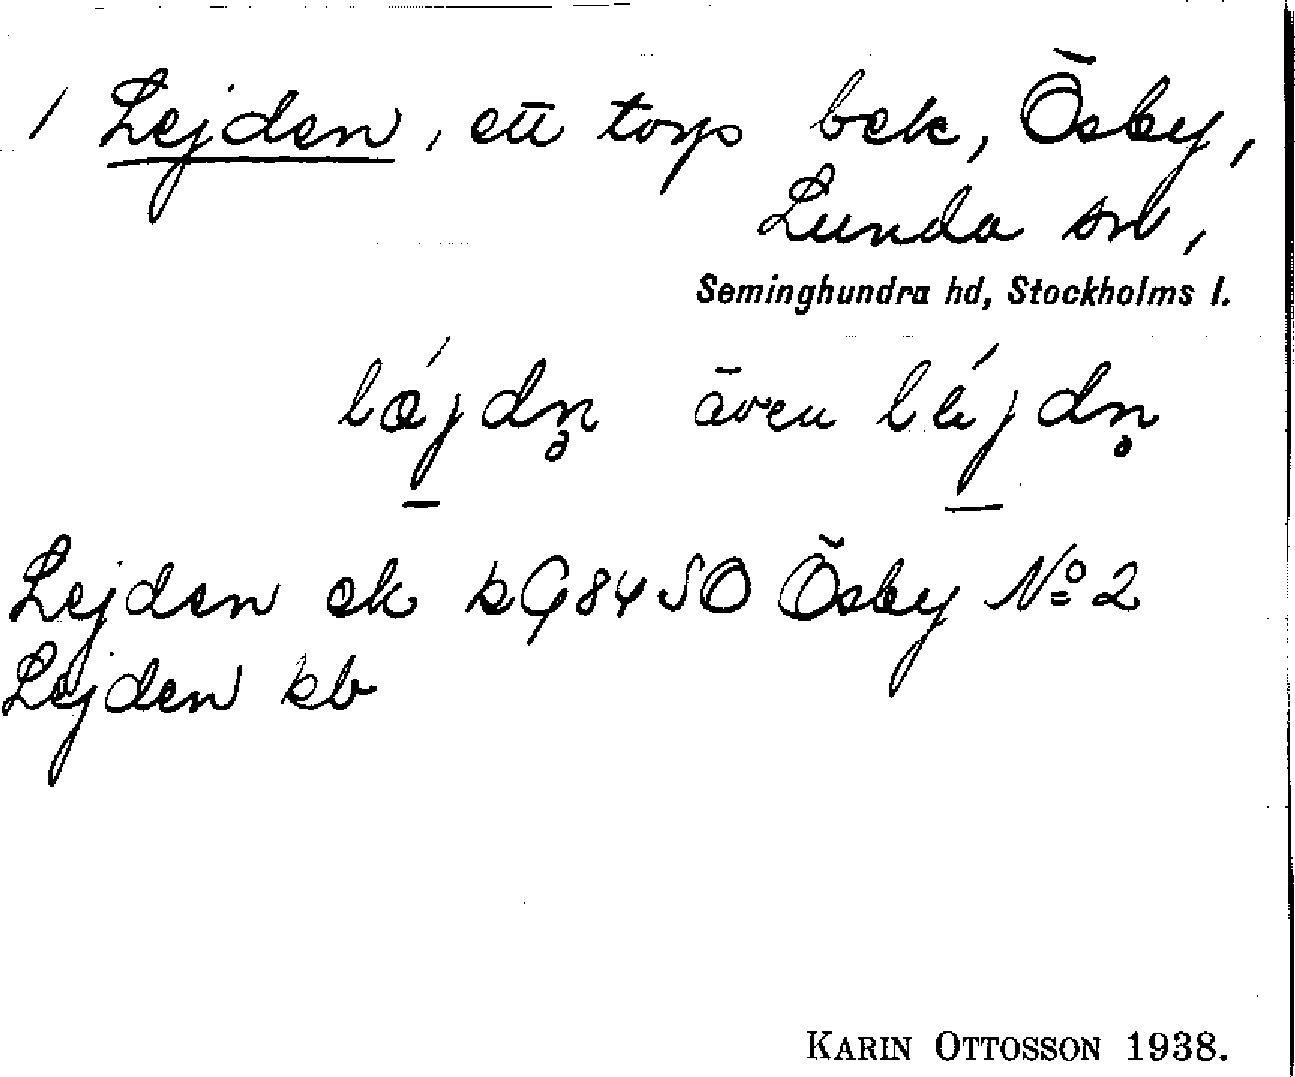 / Lejden, ett torp bek, Ösby,
Lunda sn,
Seminghundra hd, Stockholms l.
lǽjdn̥ även léjdn̥
Lejden ek kG 8450 Ösby No 2
Lejden kb
KARIN OTTOSSON 1938.